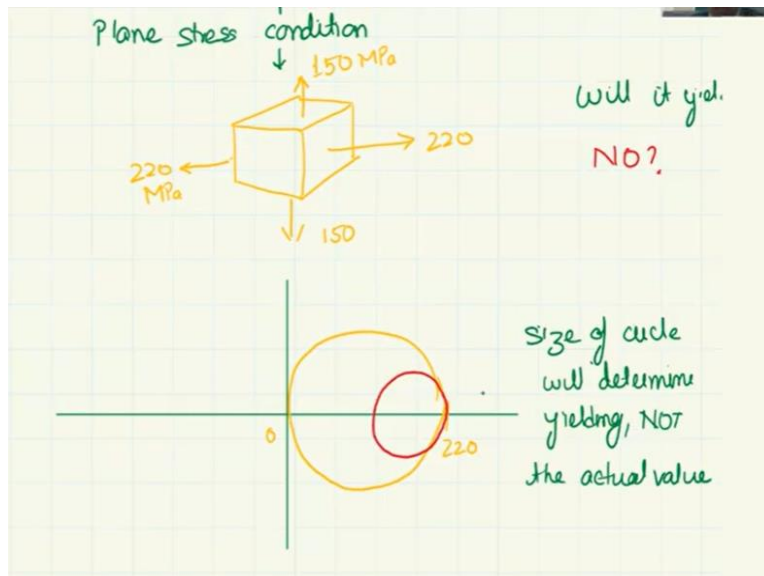 Plane stress condition
150 MPa
220
220
MPa
150
Will it
NO?
0
220
Size of
will determine
yielding, NOT
the actual value